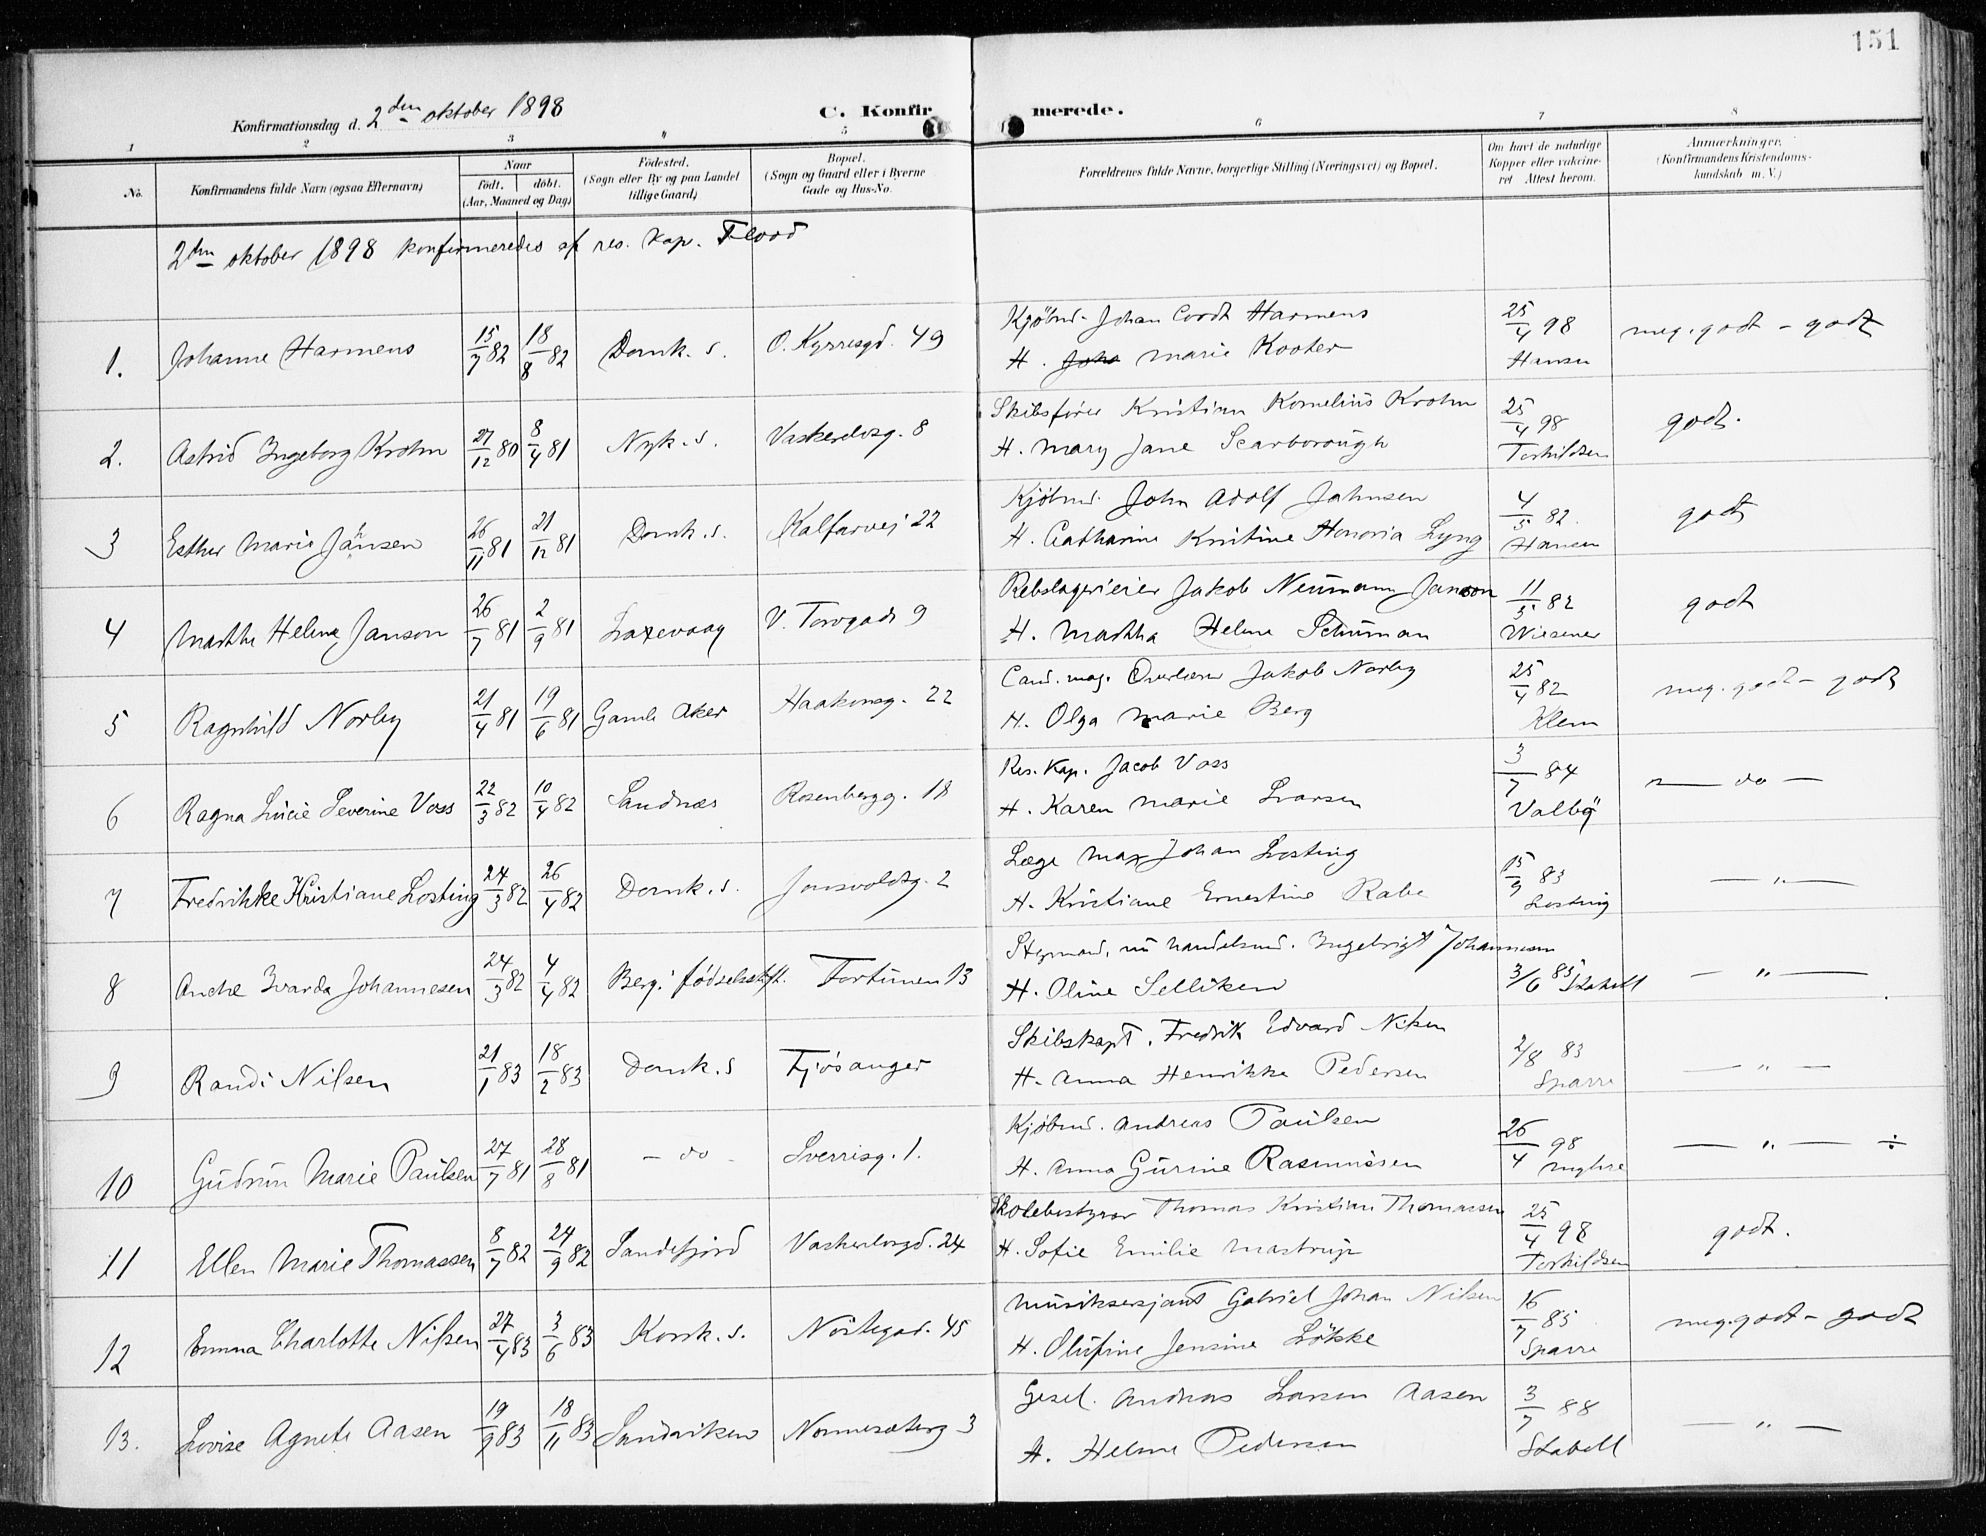 151
Konfirmationsdag d. 2den oktober 1898
C. Konfir merede.
1 2 3 4 5 6 7 8
No.
Konfirmandens fulde Navn (ogsaa Efternavn)
Naar
født. døbt.
(Aar, Maaned og Dag)
Fødested.
(Sogn eller By og paa Landet
tillige Gaard)
Bopæl.
(Sogn og Gaard eller i Byerne
Gade og Hus-No.
Forældrenes fulde Navne, borgerlige Stilling (Næringsvei) og Bopæl.
Om havt de naturlige
Kopper eller vakcine-
ret Attest herom.
Anmærkninger.
(Konfirmandens Kristendoms-
kundskab m. V.)
2den oktober 1898 konfirmeredes af res. kap. Flood
1. Johanne Harmens 15/7 82 18/8 82 Domk. s. O. Kyrresgd. 49 Kjøbmd. Johan Cordt Harmens 25/4 98 meg. godt - godt
H. Joha Marie Kooter Hansen
2. Astrid Ingeborg Krohn 27/12 80 8/4 81 Nyk. s. Vaskerelvsg. 8 Skibsfører Kristian Kornelius Krohn 25/4 98 godt.
H. Mary Jane Scarborough Torkildsen
3 Esther Marie Jahnsen 26/11 81 21/12 81 Domk. s. Kalfarvej 22 Kjøbmd. John Adolf Jahnsen 4/5 82. godt
H. Catharine Kristine Honoria Lyng Hansen
4 Martha Helene Janson 26/7 81 2/9 81 Laxevaag V. Torvgade 9 Rebslagerieier Jakob Neumann Janson 11/5 82 godt
H. Martha Helene Schuman Wiesener
5 Ragnhild Norby 21/4 81 19/6 81 Gamle Aker Haakonsg. 22 Cand. mag. Overlærer Jakob Norby 25/4 82 meg. godt - godt
H. Olga Marie Berg Klem
6 Ragna Lucie Severine Voss 22/3 82 10/4 82 Sandnæs Rosenbergg. 18 Res. Kap. Jacob Voss 3/7 84 — do —
H. Karen Marie Larsen Valbø
7 Fredrikke Kristiane Losting 24/3 82 26/4 82 Domk. s. Jonsvoldsg. 2 Læge Max Johan Losting 15/9 83 — " —
H. Kristiane Ernestine Rabe Losting
8 Anche Ivarda Johannesen 24/3 82 4/4 82 Berg. fødselsstift. Fortunen 13 Styrmand, nu handelsmd. Ingebrigt Johannesen
H. Oline Selliken 3/6 85 Stabell — " —
9 Randi Nilsen 21/1 83 18/2 83 Domk. s Fjøsanger Skibskapt. Fredrik Edvard Nilsen 2/8 83 — " —
H. Anna Henrikke Pedersen Sparre
10 Gudrun Marie Paulsen 27/7 81 28/8 81 - do - Sverrisg. 1. Kjøbmd. Andreas Paulsen 26/4 98 — " — ÷
H. Anna Gurine Rasmussen Myhre
11 Ellen Marie Thomassen 8/7 82 24/9 82 Sandefjord Vaskerelvsgd. 24 Skolebestyrer Thomas Kristian Thomassen 25/4 98 godt.
H. Sofie Emilie Mastrup Torkildsen
12 Emma Charlotte Nilsen 27/4 83 3/6 83 Korsk. s. Nøstegad. 45 Musiksersjant Gabriel Johan Nilsen 16/7 85 meg. godt - godt
H. Olufine Jensine Løkke Sparre
13. Lovise Agnete Aasen 19/9 83 18/11 83 Sandviken Nonnesæterg 3 Gesel. Andreas Larsen Aasen 3/7 88 — " —
H. Helene Pedersen Stabell